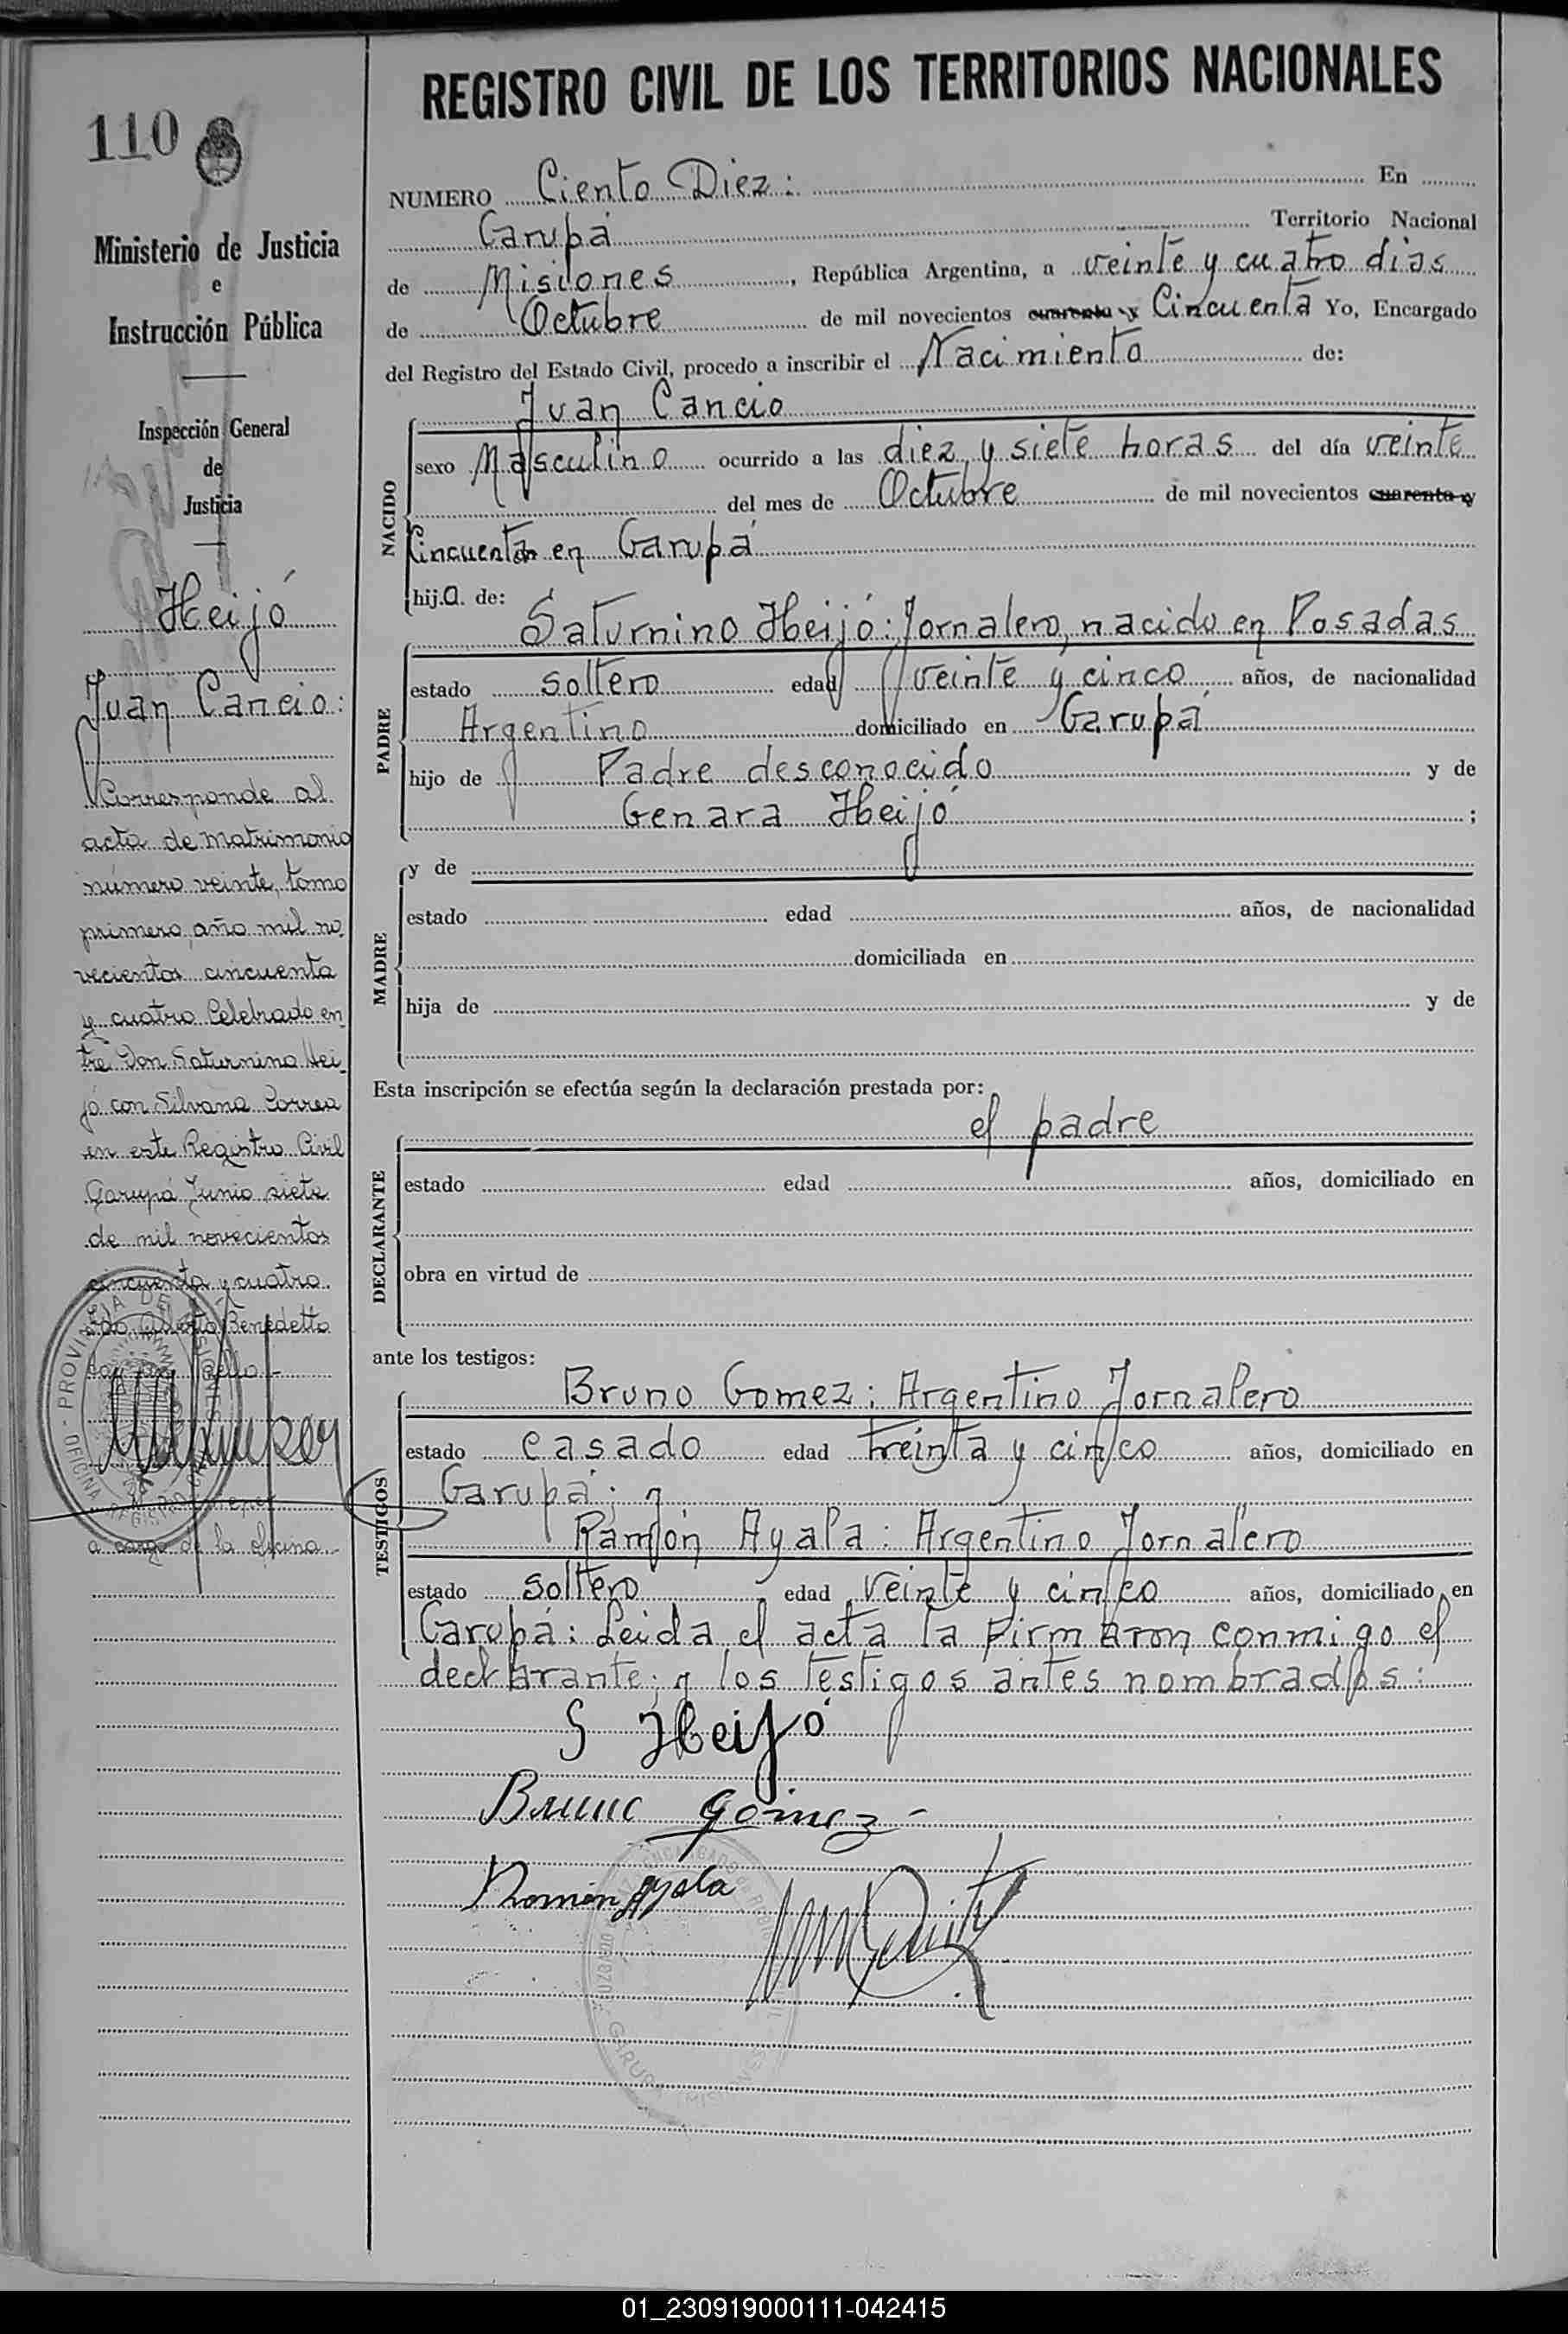 REGISTRO CIVIL DE LOS TERRITORIOS NACIONALES
110
Ministerio de Justicia
e
Instrucción Pública
Inspección General
de
Justicia
Heijó
Juan Cancio:
Corresponde al
acta de matrimonio
número veinte, tomo
primero, año mil no-
vecientos cincuenta
y cuatro Celebrado en-
tre Don Saturnino Hei-
jó con Silvana Correa
en este Registro Civil
Garupá Junio siete
de mil novecientos
cincuenta y cuatro.
Benedetto
a cargo de la oficina.-
PROVINCIA DE MISIONES
OFICINA REGISTRO
NUMERO Ciento Diez: En
Garupá Territorio Nacional
de Misiones, República Argentina, a veinte y cuatro dias
de Octubre de mil novecientos cuarenta y Cincuenta Yo, Encargado
del Registro del Estado Civil, procedo a inscribir el Nacimiento de:
NACIDO
Juan Cancio
sexo Masculino ocurrido a las diez y siete horas del día veinte
del mes de Octubre de mil novecientos cuarenta y
Cincuenta en Garupá
hijo de:
PADRE
Saturnino Heijó: Jornalero, nacido en Posadas
estado soltero edad veinte y cinco años, de nacionalidad
Argentino domiciliado en Garupá
hijo de Padre desconocido y de
Genara Heijó ;
MADRE
y de
estado edad años, de nacionalidad
domiciliada en
hija de y de
Esta inscripción se efectúa según la declaración prestada por:
DECLARANTE
el padre
estado edad años, domiciliado en
obra en virtud de
ante los testigos:
TESTIGOS
Bruno Gomez: Argentino Jornalero
estado casado edad treinta y cinco años, domiciliado en
Garupá; y
Ramón Ayala: Argentino Jornalero
estado soltero edad veinte y cinco años, domiciliado en
Garupá: Leida el acta la firmaron conmigo el
declarante; y los testigos antes nombrados:
S Heijó
Bruno Gómez
Ramón Ayala
GARUPÁ MISIONES
01_230919000111-042415